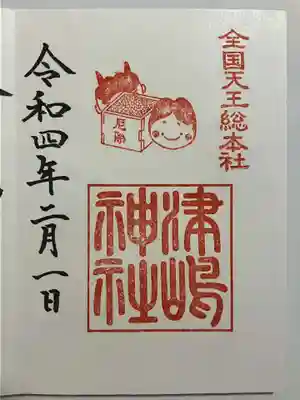 全国天王総本社
厄除
津嶋
神社
令和四年二月一日